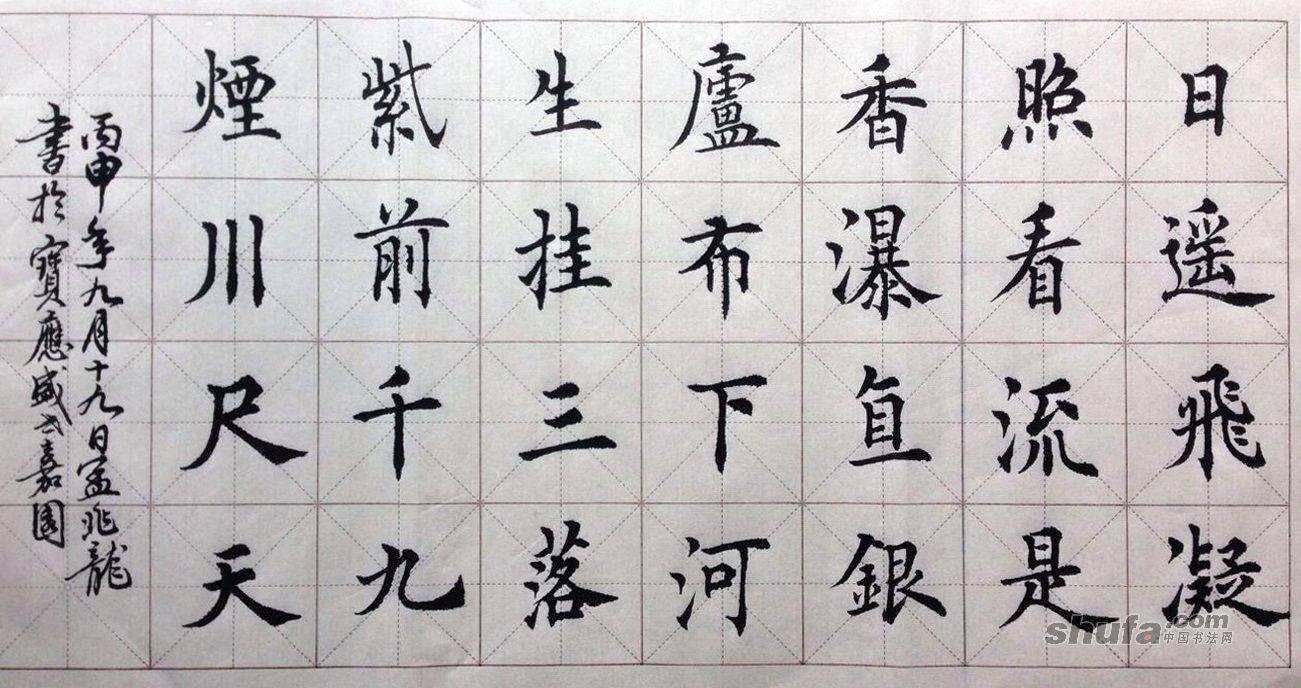 日照香廬生紫煙
遥看瀑布挂前川
飛流直下三千尺
凝是銀河落九天
丙申年九月十九日兆龍
書於寶應盛世嘉園
shufa.com
中国书法网